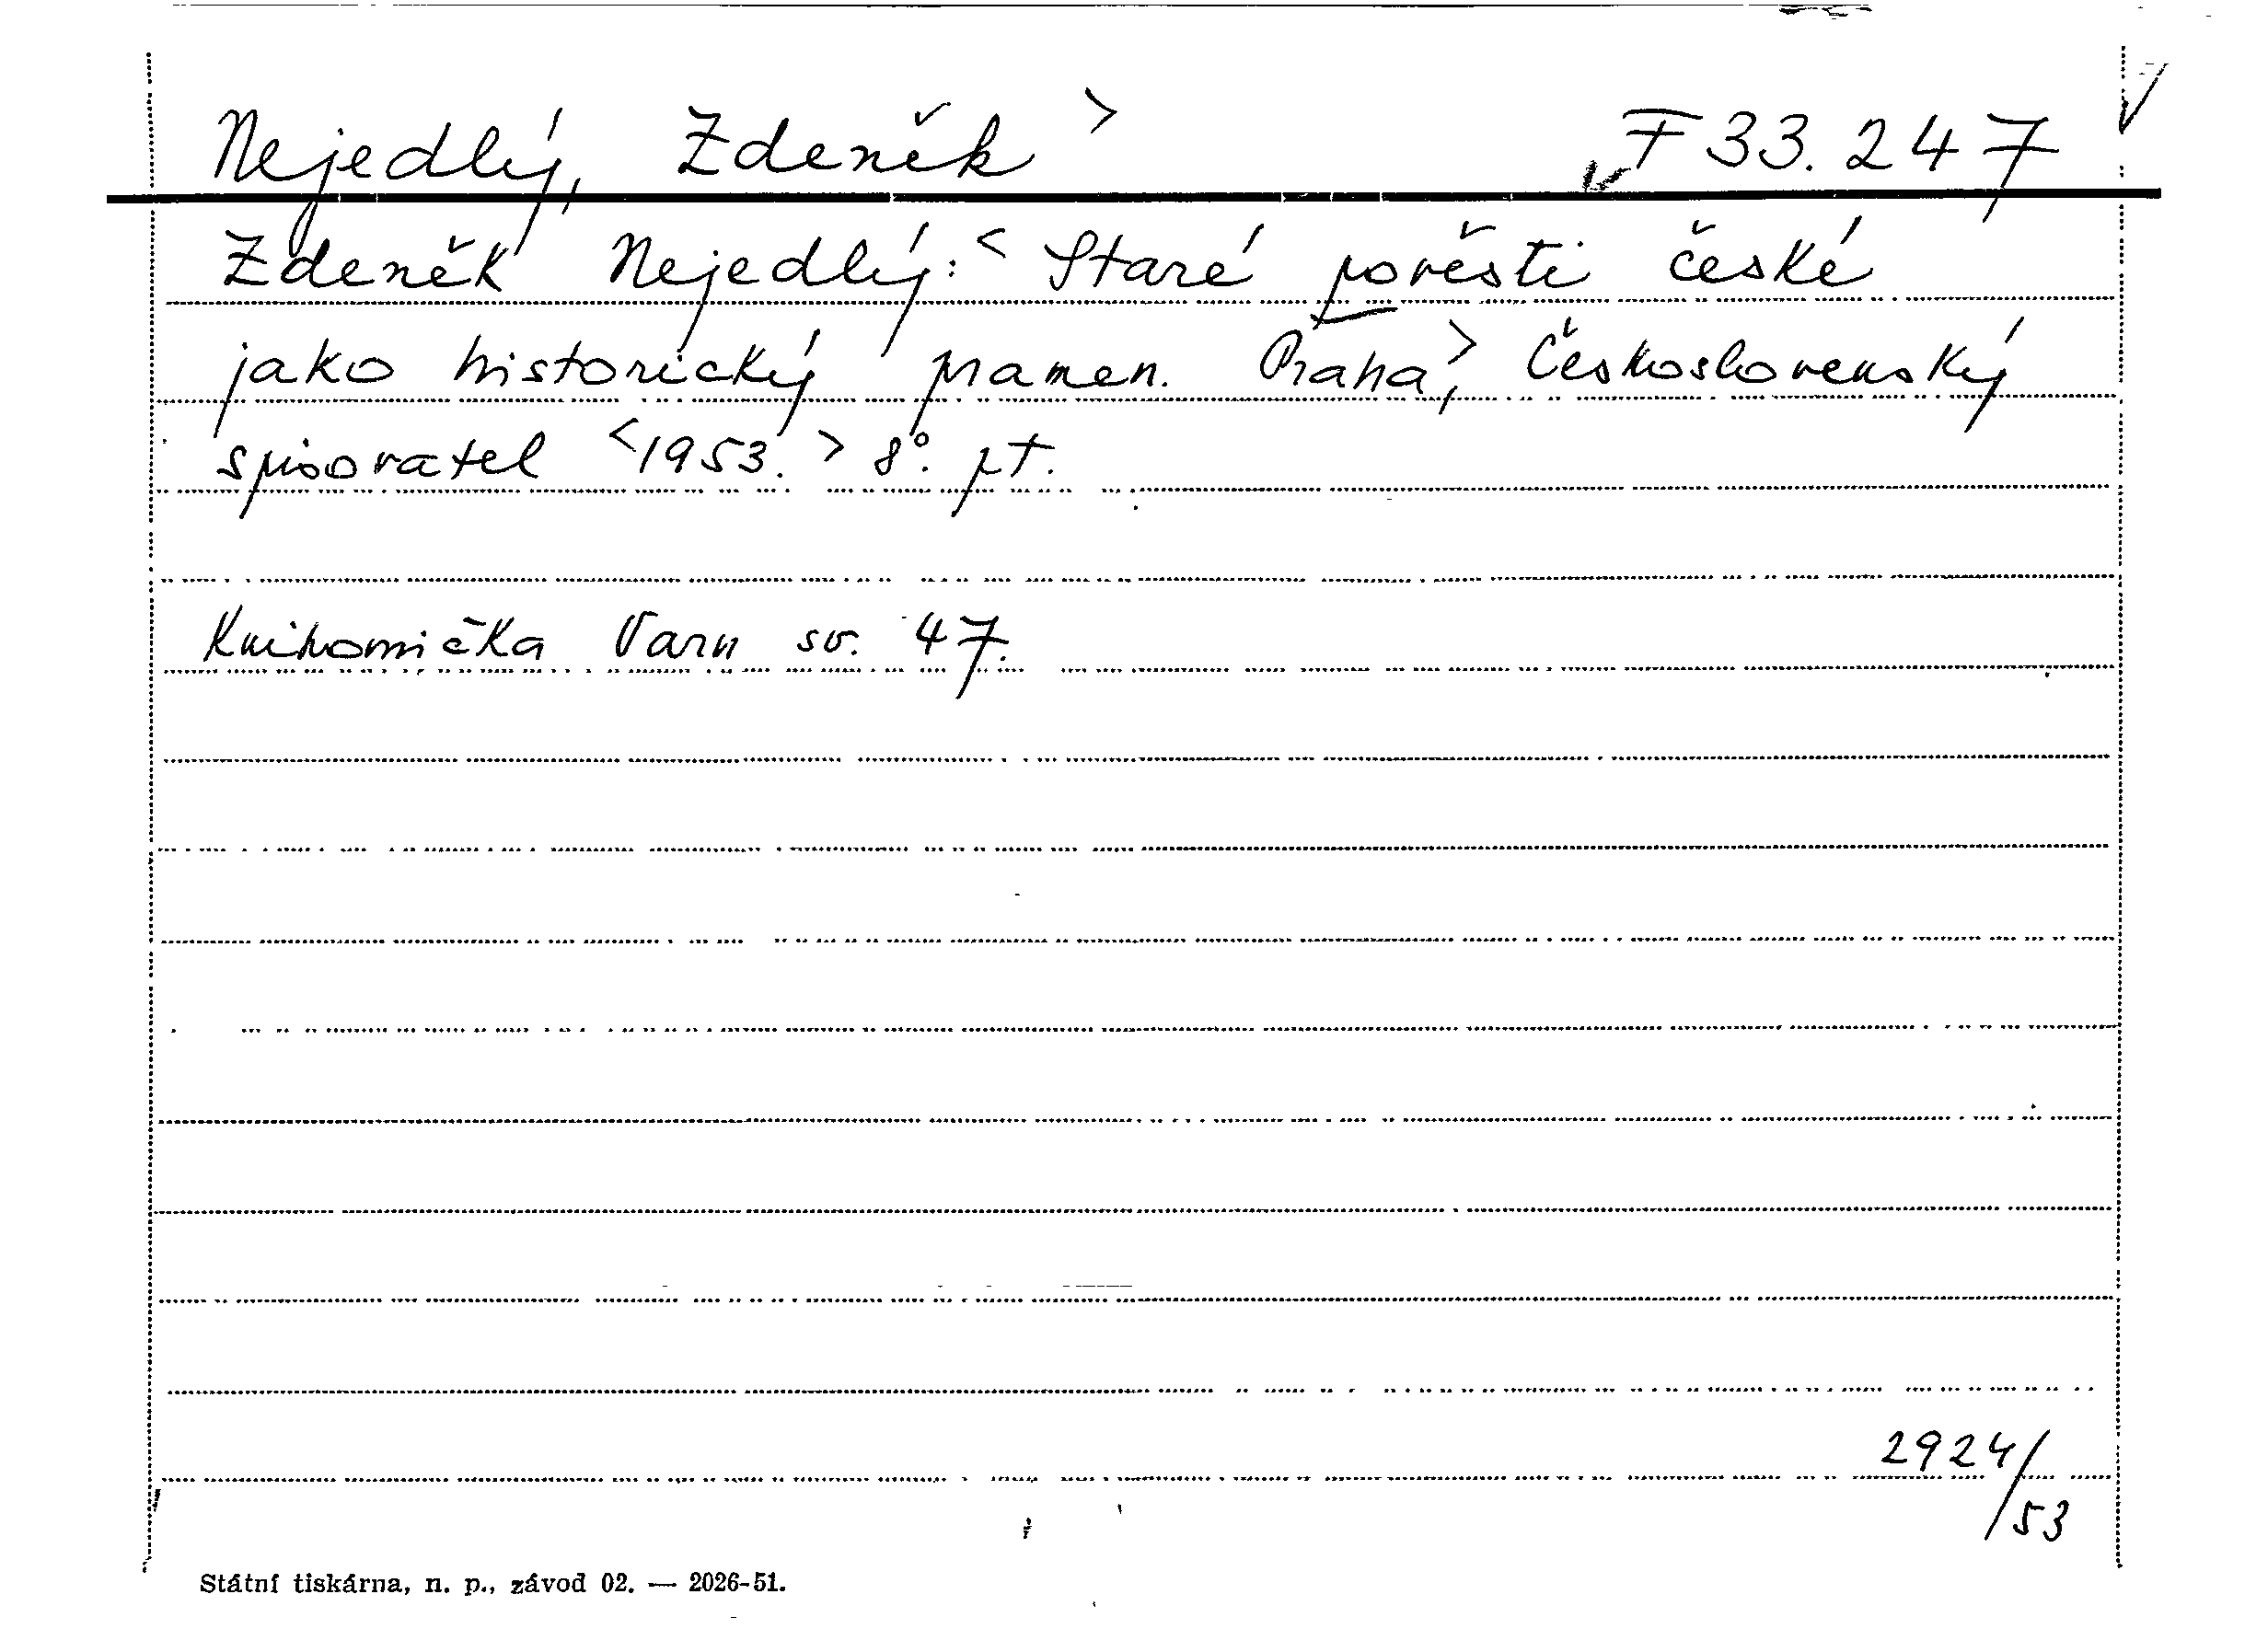 Nejedlý, Zdeněk > F 33.247
Zdeněk Nejedlý: < Staré pověsti české
jako historický pramen. Praha, > Československý
spisovatel < 1953. > 8°. pt.
Knihovnička Varu sv. 47.
2924/53
Státní tiskárna, n. p., závod 02. — 2026-51.